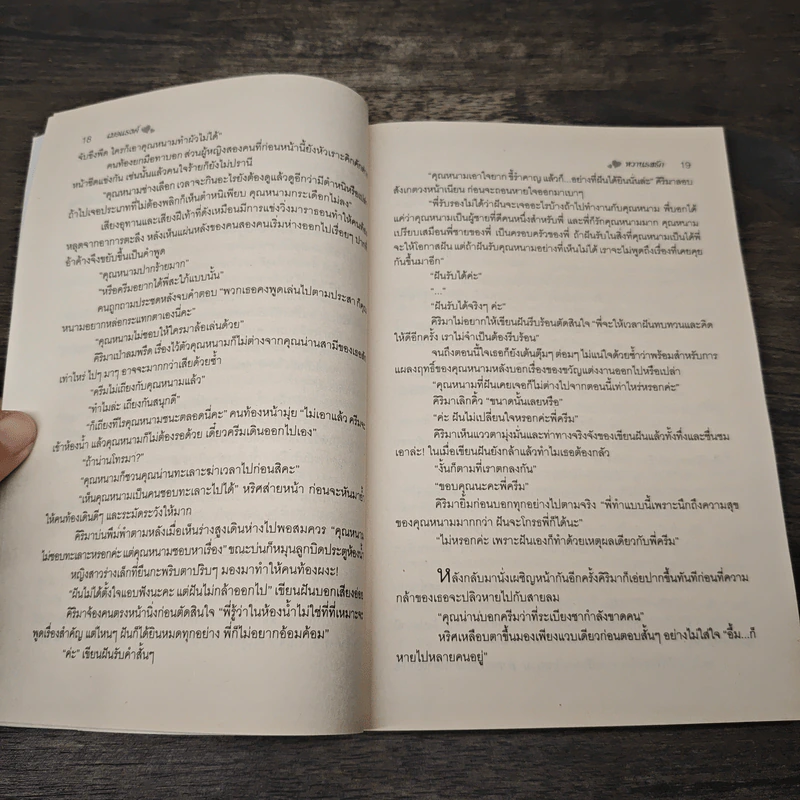 18 แชมแรงค์
จับชิงพืด ใครก็เอาคุณหนามทำผัวไม่ได้"
คนท้องยกมือทาบอก ส่วนผู้หญิงสองคนที่ก่อนหน้านี้ยังหัวเราะคิกคัก
หน้าซีดแข่งกัน เช่นนั้นแล้วคนใจร้ายก็ยังไม่ปรานี
"คุณหนามช่างเลือก เวลาจะกินอะไรยังต้องดูแล้วดูอีกว่ามีตำหนิหรือ
ถ้าไปเจอประเภทที่ไม่ต้องพลิกก็เห็นตำหนิเพียบ คุณหนามกระเดือกไม่ลง"
เสียงอุทานและเสียงฝีเท้าที่ดังเหมือนมีการแข่งวิ่งมาราธอนทำให้คน
หลุดจากอาการตะลึง หลังเห็นแผ่นหลังของคนสองคนเริ่มห่างออกไปเรื่อยๆ
อ้าค้างจึงขยับขึ้นเป็นคำพูด
"คุณหนามปากร้ายมาก"
"หรือครีมอยากได้พี่สะใภ้แบบนั้น"
คนถูกถามประชดหลังจบคำตอบ "พวกเธอคงพูดเล่นไปตามประสา ก็
หนามอยากหล่อกระแทกตาเองนี่คะ"
"คุณหนามไม่ชอบให้ใครมาล้อเล่นด้วย"
คีริมาเป่าลมพรืด เรื่องไว้ตัวคุณหนามก็ไม่ต่างจากคุณน่านสามีของเธอ
เท่าไหร่ ไปๆ มาๆ อาจจะมากกว่าเสียด้วยซ้ำ
"ครีมไม่เถียงกับคุณหนามแล้ว"
"ทำไมล่ะ เถียงกันสนุกดี"
"ก็เถียงทีไรคุณหนามชนะตลอดนี่คะ" คนท้องหน้ามุ่ย "ไม่เอาแล้ว ครีมจะ
เข้าห้องน้ำ แล้วคุณหนามก็ไม่ต้องรอด้วย เดี๋ยวครีมเดินออกไปเอง"
"ถ้าน่านโทรมา?"
"คุณหนามก็ชวนคุณน่านทะเลาะฆ่าเวลาไปก่อนสิคะ"
"เห็นคุณหนามเป็นคนชอบทะเลาะไปได้" หริศส่ายหน้า ก่อนจะหันมา
ให้คนท้องเดินดีๆ และระมัดระวังให้มาก
คีริมาบ่นพึมพำตามหลังเมื่อเห็นร่างสูงเดินห่างไปพอสมควร "คุณหนาม
ไม่ชอบทะเลาะหรอกค่ะ แต่คุณหนามชอบหาเรื่อง" ขณะบ่นก็หมุนลูกบิดประตูห้องน้ำ
หญิงสาวร่างเล็กที่ยืนกะพริบตาปริบๆ มองมาทำให้คนท้องผงะ!
"ฝันไม่ได้ตั้งใจแอบฟังนะคะ แต่ฝันไม่กล้าออกไป" เขียนฝันบอกเสียงอ่อย
คีริมาจ้องคนตรงหน้านิ่งก่อนตัดสินใจ "พี่รู้ว่าในห้องน้ำไม่ใช่ที่ที่เหมาะจะ
พูดเรื่องสำคัญ แต่ไหนๆ ฝันก็ได้ยินหมดทุกอย่าง พี่ก็ไม่อยากอ้อมค้อม"
"ค่ะ" เขียนฝันรับคำสั้นๆ
หวามเสน่หา 19
"คุณหนามเอาใจยาก ขี้รำคาญ แล้วก็...อย่างที่ฝันได้ยินนั่นล่ะ" คีริมาลอบ
สังเกตดวงหน้าเนียน ก่อนจะถอนหายใจออกมาเบาๆ
"พี่รับรองไม่ได้ว่าฝันจะเจออะไรบ้างถ้าไปทำงานกับคุณหนาม พี่บอกได้
แค่ว่าคุณหนามเป็นผู้ชายที่ดีคนหนึ่งสำหรับพี่ และพี่ก็รักคุณหนามมาก คุณหนาม
เปรียบเสมือนพี่ชายของพี่ เป็นครอบครัวของพี่ ถ้าฝันรับในสิ่งที่คุณหนามเป็นได้พี่
จะให้โอกาสฝัน แต่ถ้าฝันรับคุณหนามอย่างที่เห็นไม่ได้ เราจะไม่พูดถึงเรื่องที่เคยคุย
กันขึ้นมาอีก"
"ฝันรับได้ค่ะ"
"..."
"ฝันรับได้จริงๆ ค่ะ"
คีริมาไม่อยากให้เขียนฝันรีบร้อนตัดสินใจ "พี่จะให้เวลาฝันทบทวนและคิด
ให้ดีอีกครั้ง เราไม่จำเป็นต้องรีบร้อน"
จนถึงตอนนี้ใจเธอก็ยังเต้นตุ๊มๆ ต่อมๆ ไม่แน่ใจด้วยซ้ำว่าพร้อมสำหรับการ
แผลงฤทธิ์ของคุณหนามหลังบอกเรื่องของขวัญแต่งงานออกไปหรือเปล่า
"คุณหนามที่ฝันเคยเจอก็ไม่ต่างไปจากตอนนี้เท่าไหร่หรอกค่ะ"
คีริมาเลิกคิ้ว "ขนาดนั้นเลยหรือ"
"ค่ะ ฝันไม่เปลี่ยนใจหรอกค่ะพี่ครีม"
คีริมาเห็นแววตามุ่งมั่นและท่าทางจริงจังของเขียนฝันแล้วทั้งทึ่งและชื่นชม
เอาล่ะ! ในเมื่อเขียนฝันยังกล้าแล้วทำไมเธอต้องกลัว
"งั้นก็ตามที่เราตกลงกัน"
"ขอบคุณนะคะพี่ครีม"
คีริมายิ้มก่อนบอกทุกอย่างไปตามจริง "พี่ทำแบบนี้เพราะนึกถึงความสุข
ของคุณหนามมากกว่า ฝันจะโกรธพี่ก็ได้นะ"
"ไม่หรอกค่ะ เพราะฝันเองก็ทำด้วยเหตุผลเดียวกับพี่ครีม"
หลังกลับมานั่งเผชิญหน้ากันอีกครั้งคีริมาก็เอ่ยปากขึ้นทันทีก่อนที่ความ
กล้าของเธอจะปลิวหายไปกับสายลม
"คุณน่านบอกครีมว่าที่ระเบียงชากำลังขาดคน"
หริศเหลือบตาขึ้นมองเพียงแวบเดียวก่อนตอบสั้นๆ อย่างไม่ใส่ใจ "อื้ม...ก็
หายไปหลายคนอยู่"